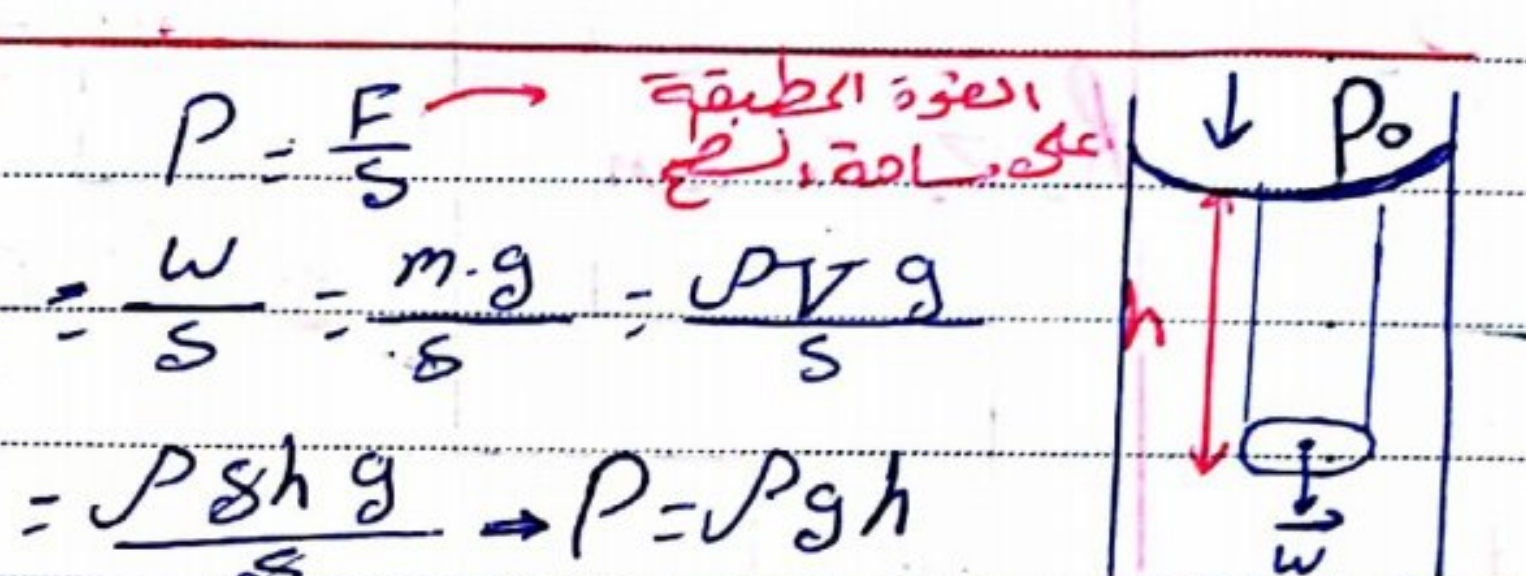 P = F/S → القوة المطبقة
على مساحة السطح
= w/s = m.g/s = ρVg/s
= ρshg/s → P = ρgh
P₀
h
w